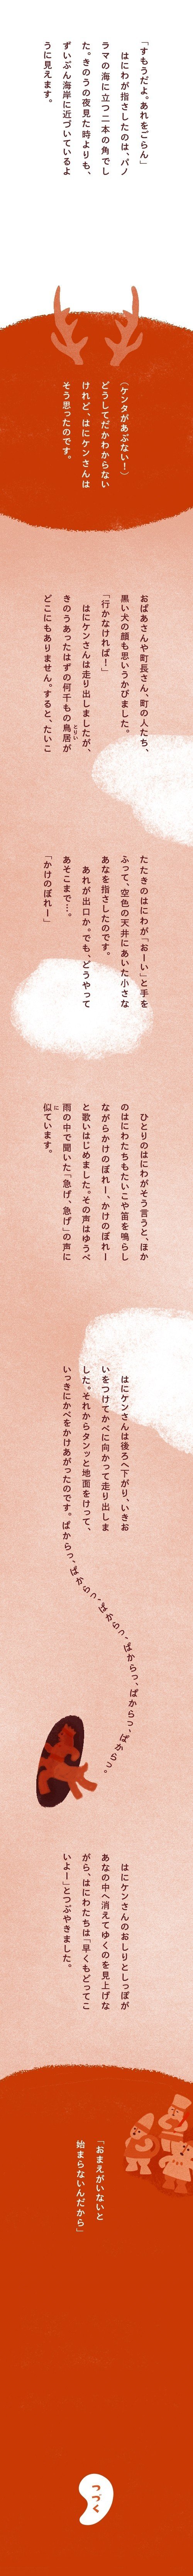 「すもうだよ。あれをごらん」
　はにわが指さしたのは、パノ
ラマの海に立つ二本の角でし
た。きのうの夜見た時よりも、
ずいぶん海岸に近づいているよ
うに見えます。
（ケンタがあぶない！）
どうしてだかわからない
けれど、はにケンさんは
そう思ったのです。
おばあさんや町長さん、町の人たち、
黒い犬の顔も思いうかびました。
「行かなければ！」
　はにケンさんは走り出しましたが、
きのうあったはずの何千もの鳥居が
とりい
どこにもありません。すると、たいこ
たたきのはにわが「おーい」と手を
ふって、空色の天井にあいた小さな
あなを指さしたのです。
　あれが出口か。でも、どうやって
あそこまで…。
「かけのぼれー」
　ひとりのはにわがそう言うと、ほか
のはにわたちもたいこや笛を鳴らし
ながらかけのぼれー、かけのぼれー
と歌いはじめました。その声はゆうべ
雨の中で聞いた「急げ、急げ」の声に
似ています。
に
　はにケンさんは後ろへ下がり、いきお
いをつけてかべに向かって走り出しま
した。それからタンッと地面をけって、
いっきにかべをかけあがったのです。ぱからっ、ぱからっ、ぱからっ、ぱからっ、ぱからっ、ぱからっ。
　はにケンさんのおしりとしっぽが
あなの中へ消えてゆくのを見上げな
がら、はにわたちは「早くもどってこ
いよー」とつぶやきました。
「おまえがいないと
始まらないんだから」
つづく